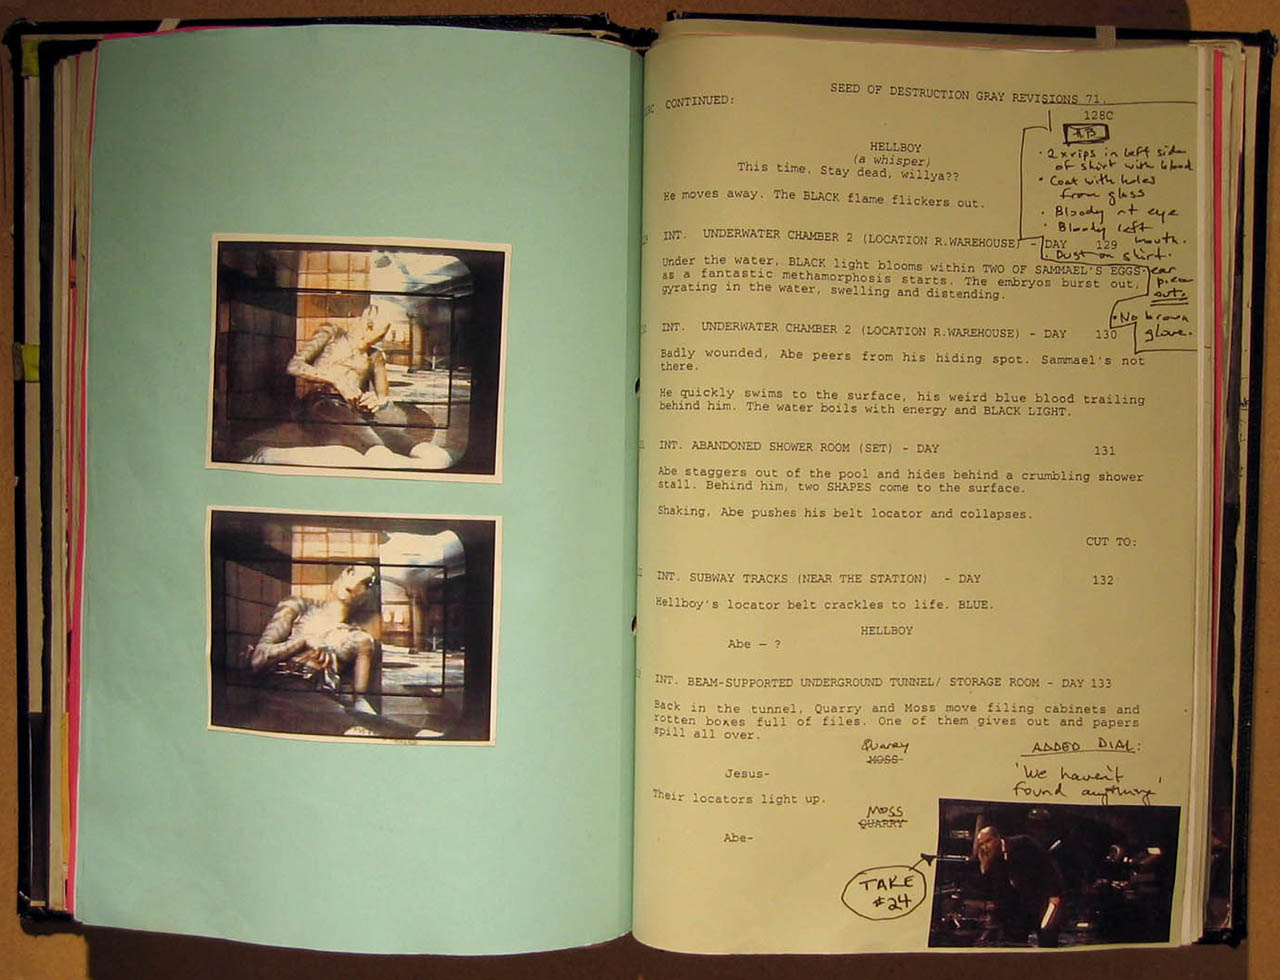 SEED OF DESTRUCTION GRAY REVISIONS 71.
CONTINUED:
128C
HB
· 2 x rips in left side
of shirt with blood
· Coat with holes
from glass
· Bloody rt eye
· Bloody left
mouth.
· Dust on shirt.
· ear
piece
out
· No brown
glove.
HELLBOY
(a whisper)
This time. Stay dead, willya??
He moves away. The BLACK flame flickers out.
INT. UNDERWATER CHAMBER 2 (LOCATION R.WAREHOUSE) - DAY 129
Under the water, BLACK light blooms within TWO OF SAMMAEL'S EGGS
as a fantastic methamorphosis starts. The embryos burst out,
gyrating in the water, swelling and distending.
INT. UNDERWATER CHAMBER 2 (LOCATION R.WAREHOUSE) - DAY 130
Badly wounded, Abe peers from his hiding spot. Sammael's not
there.
He quickly swims to the surface, his weird blue blood trailing
behind him. The water boils with energy and BLACK LIGHT.
INT. ABANDONED SHOWER ROOM (SET) - DAY 131
Abe staggers out of the pool and hides behind a crumbling shower
stall. Behind him, two SHAPES come to the surface.
Shaking, Abe pushes his belt locator and collapses.
CUT TO:
INT. SUBWAY TRACKS (NEAR THE STATION) - DAY 132
Hellboy's locator belt crackles to life. BLUE.
HELLBOY
Abe — ?
INT. BEAM-SUPPORTED UNDERGROUND TUNNEL/ STORAGE ROOM - DAY 133
Back in the tunnel, Quarry and Moss move filing cabinets and
rotten boxes full of files. One of them gives out and papers
spill all over.
Quarry
MOSS
Jesus-
ADDED DIAL:
'We haven't
found anything'
Their locators light up.
MOSS
QUARRY
Abe-
TAKE
#24